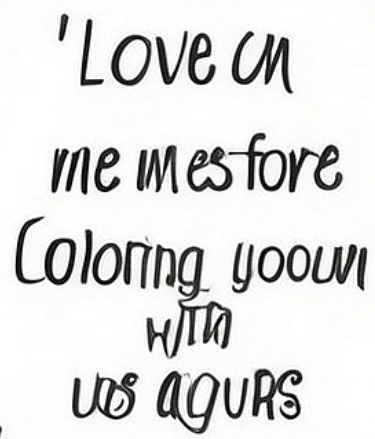 'Love cn
me imesfore
Coloring yooun
with
uos agurs